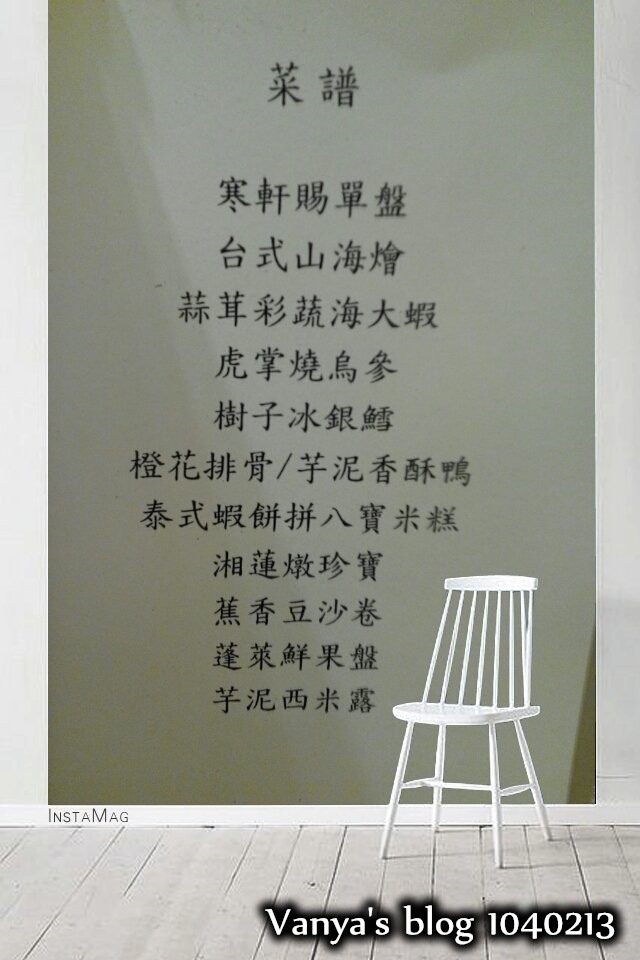 菜譜
寒軒賜單盤
台式山海燴
蒜茸彩蔬海大蝦
虎掌燒烏參
樹子冰銀鱈
橙花排骨/芋泥香酥鴨
泰式蝦餅拼八寶米糕
湘蓮燉珍寶
蕉香豆沙卷
蓬萊鮮果盤
芋泥西米露
INSTAMAG
Vanya's blog 1040213